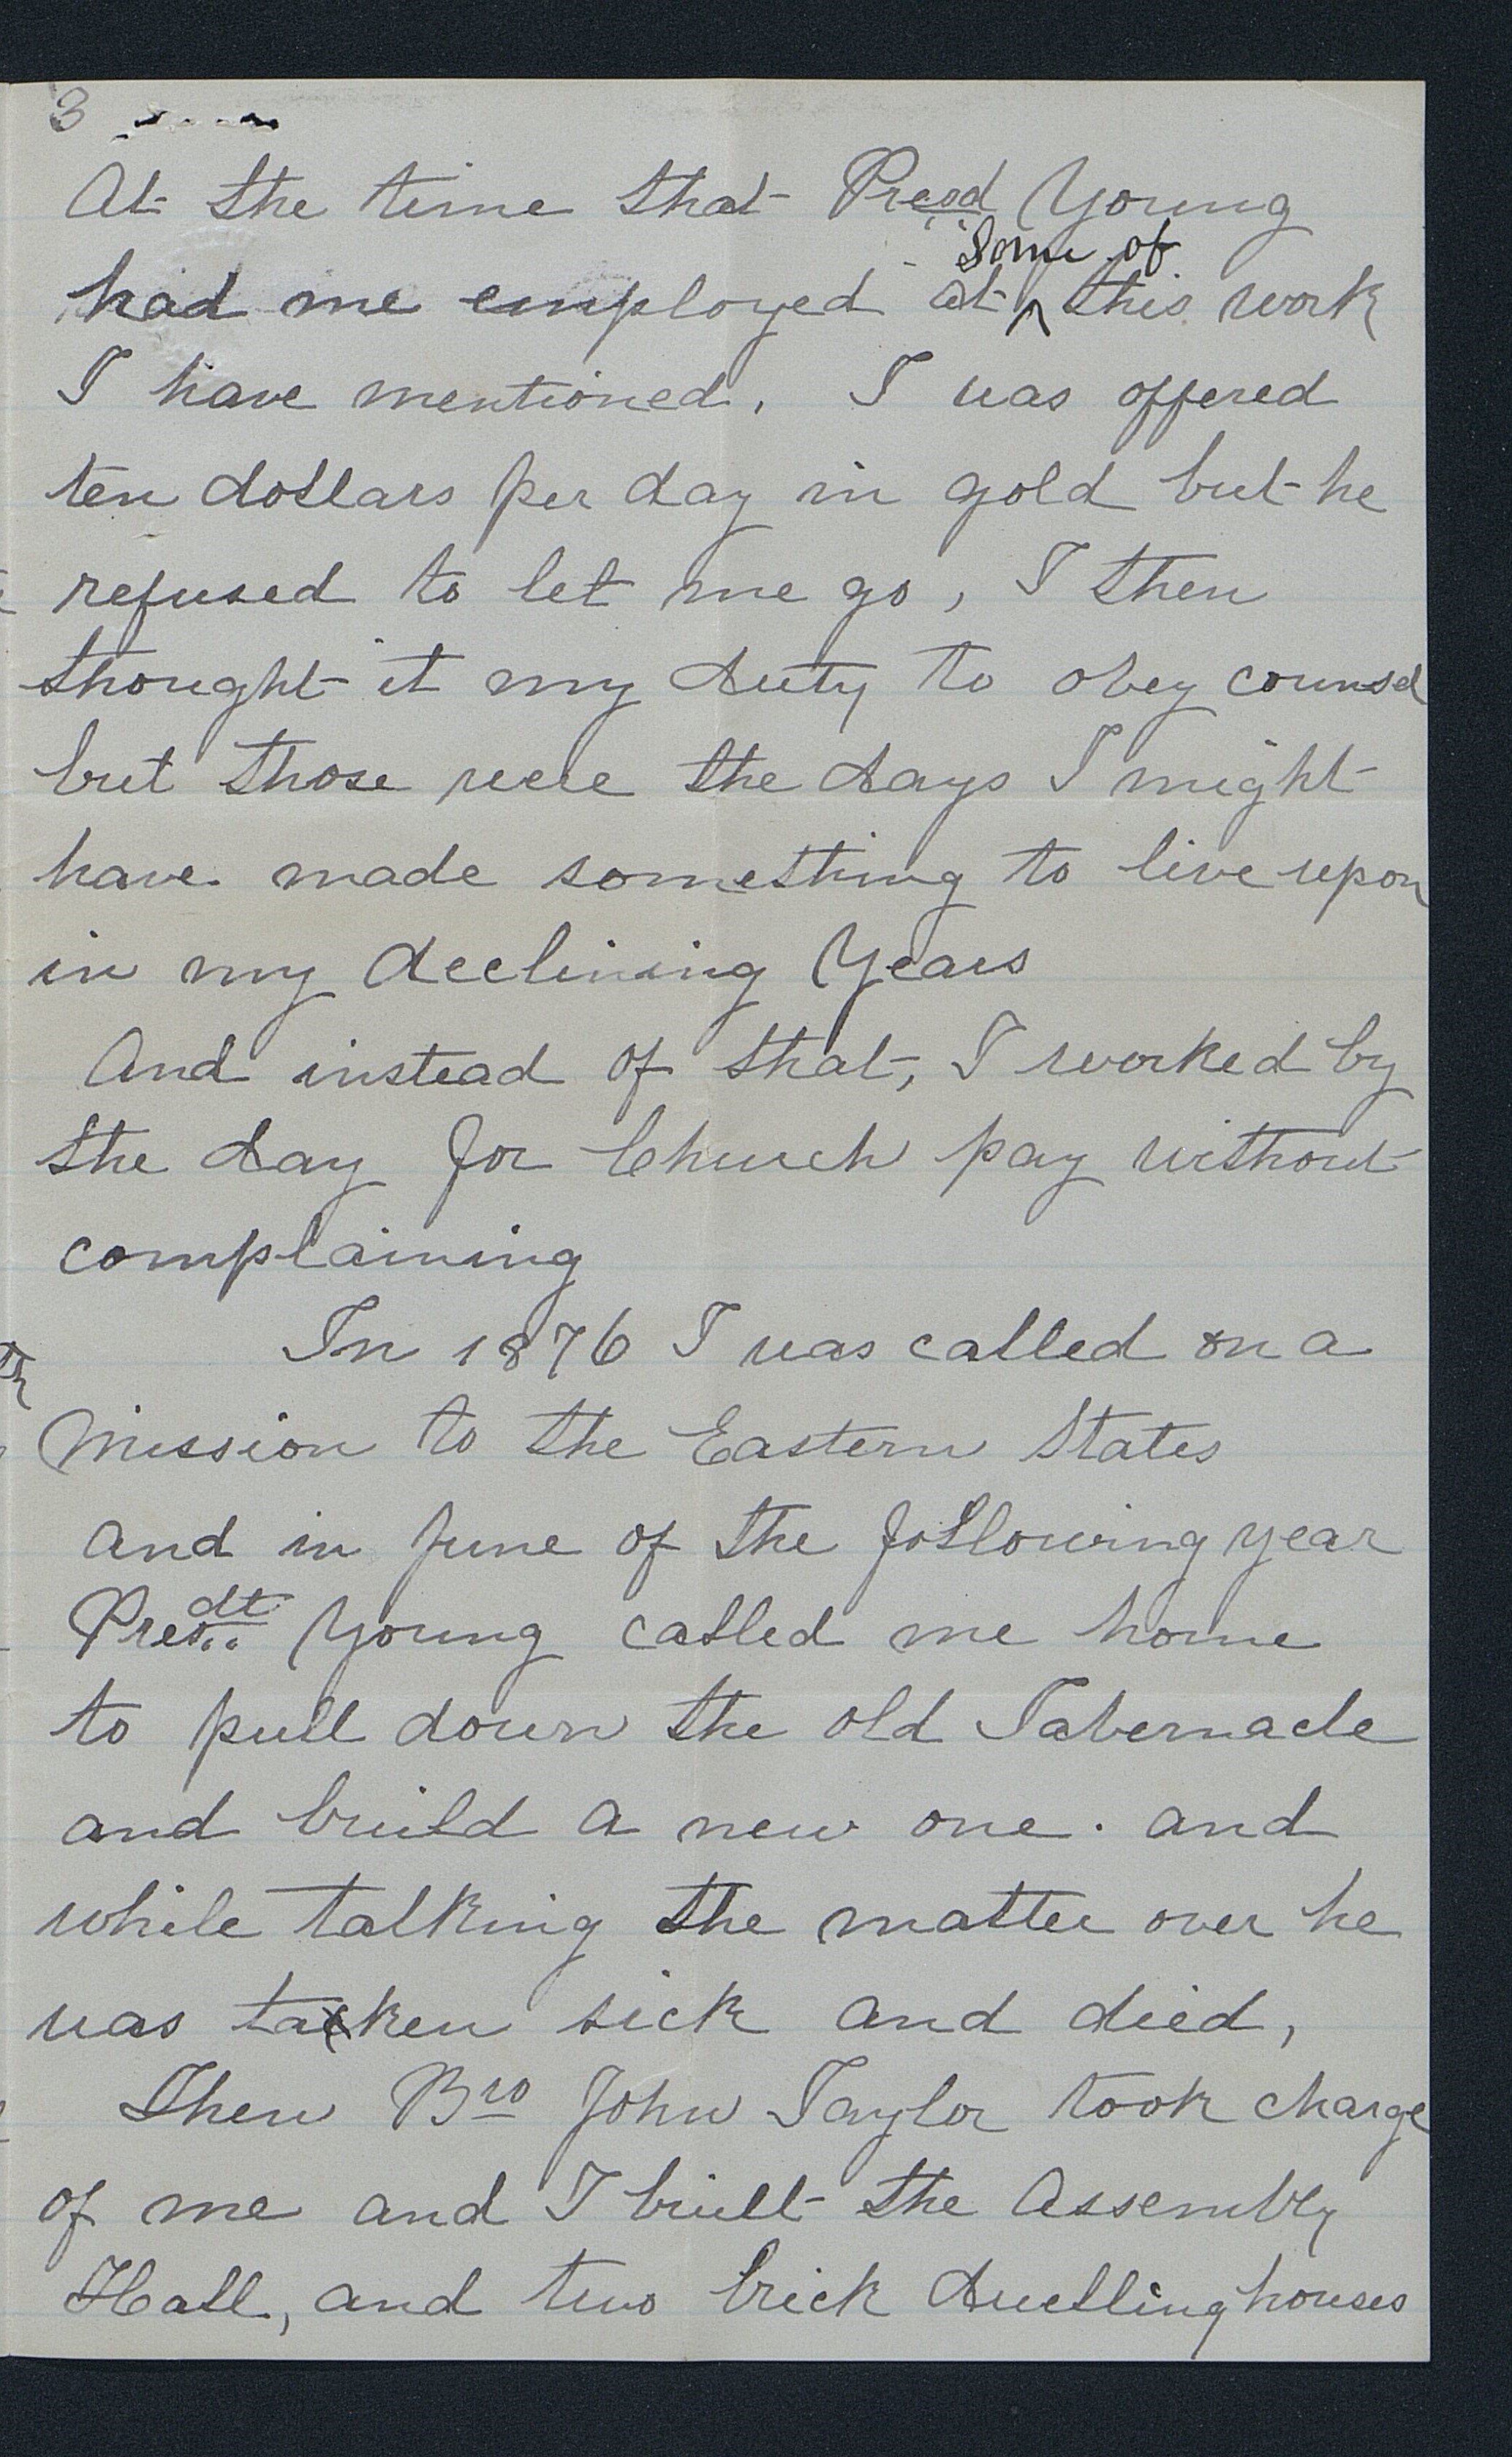 3
At the time that Presd Young
had me employed at ^ Some of this work
I have mentioned, I was offered
ten dollars per day in gold but he
refused to let me go, I then
thought it my duty to obey counsel
but those were the days I might
have made something to live upon
in my declining years
And instead of that, I worked by
the day for Church pay without
complaining
In 1876 I was called on a
Mission to the Eastern States
and in June of the following year
Presdt Young called me home
to pull down the old Tabernacle
and build a new one. and
while talking the matter over he
was taken sick and died,
Then Bro John Taylor took charge
of me and I built the Assembly
Hall, and two brick dwelling houses